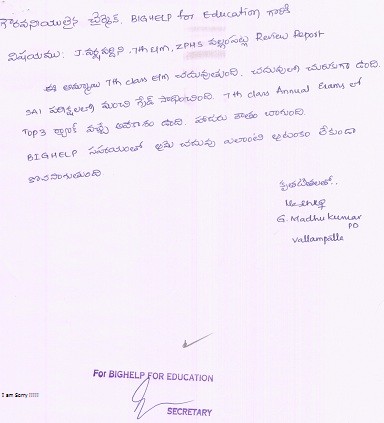 గౌరవనీయులైన చైర్మెన్, BIGHELP for Education గారికి
విషయము: J. , 7th E/m, ZPHS Review Report
ఈ అమ్మాయి 7th class E/m చదువుతుంది. చదువులో చురుకుగా ఉంది.
SA1 పరీక్షలలో మంచి గ్రేడ్ సాధించింది. 7th class Annual Exams లో
Top 3 ర్యాంక్ వచ్చే అవకాశం ఉంది. హాజరు శాతం బాగుంది.
BIGHELP సహాయంతో ఆమె చదువు ఎలాంటి ఆటంకం లేకుండా
కొనసాగుతుంది
కృతజ్ఞతలతో..
G. Madhu kumar
PO
Vallampalle
For BIGHELP FOR EDUCATION
SECRETARY
I am Sorry !!!!!